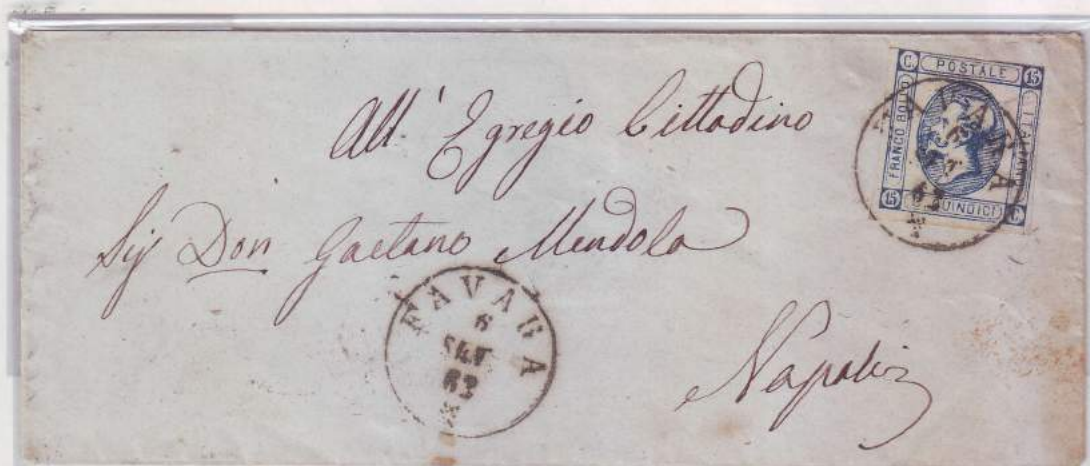 C. POSTALE 15
FRANCO BOLLO
ITALIANO
15 QUINDICI C.
All' Egregio Cittadino
Sig Don Gaetano Mendola
FAVARA
6
63
Napoli